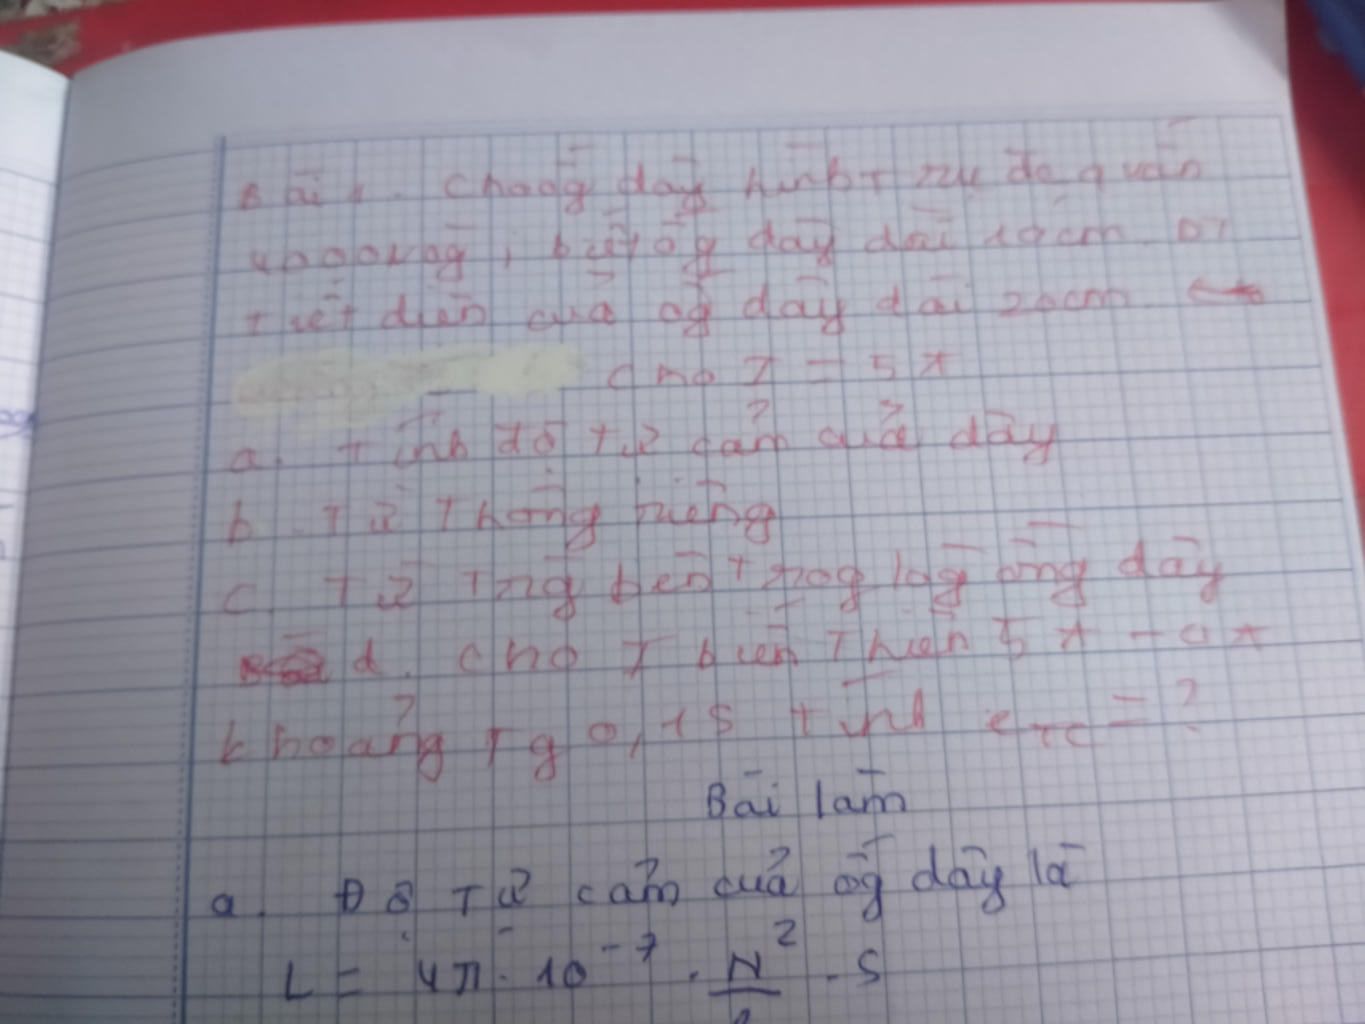 Bài 1. Cho ốg dây hình trụ đc quấn
vòg, biết ốg dây dài 10cm.
tiết diện của ốg dây dài 20cm
cho I = 5A
a. tính độ tự cảm của dây
b. Từ Thông riêng
c. Từ Trg bên trog lòg ống dây
d. cho I biến Thiên 5A - 0A
khoảng Tg 0,1s tính eTC = ?
Bài làm
a. Độ Tự cảm của ốg dây là
L = 4π . 10⁻⁷ . N² . S